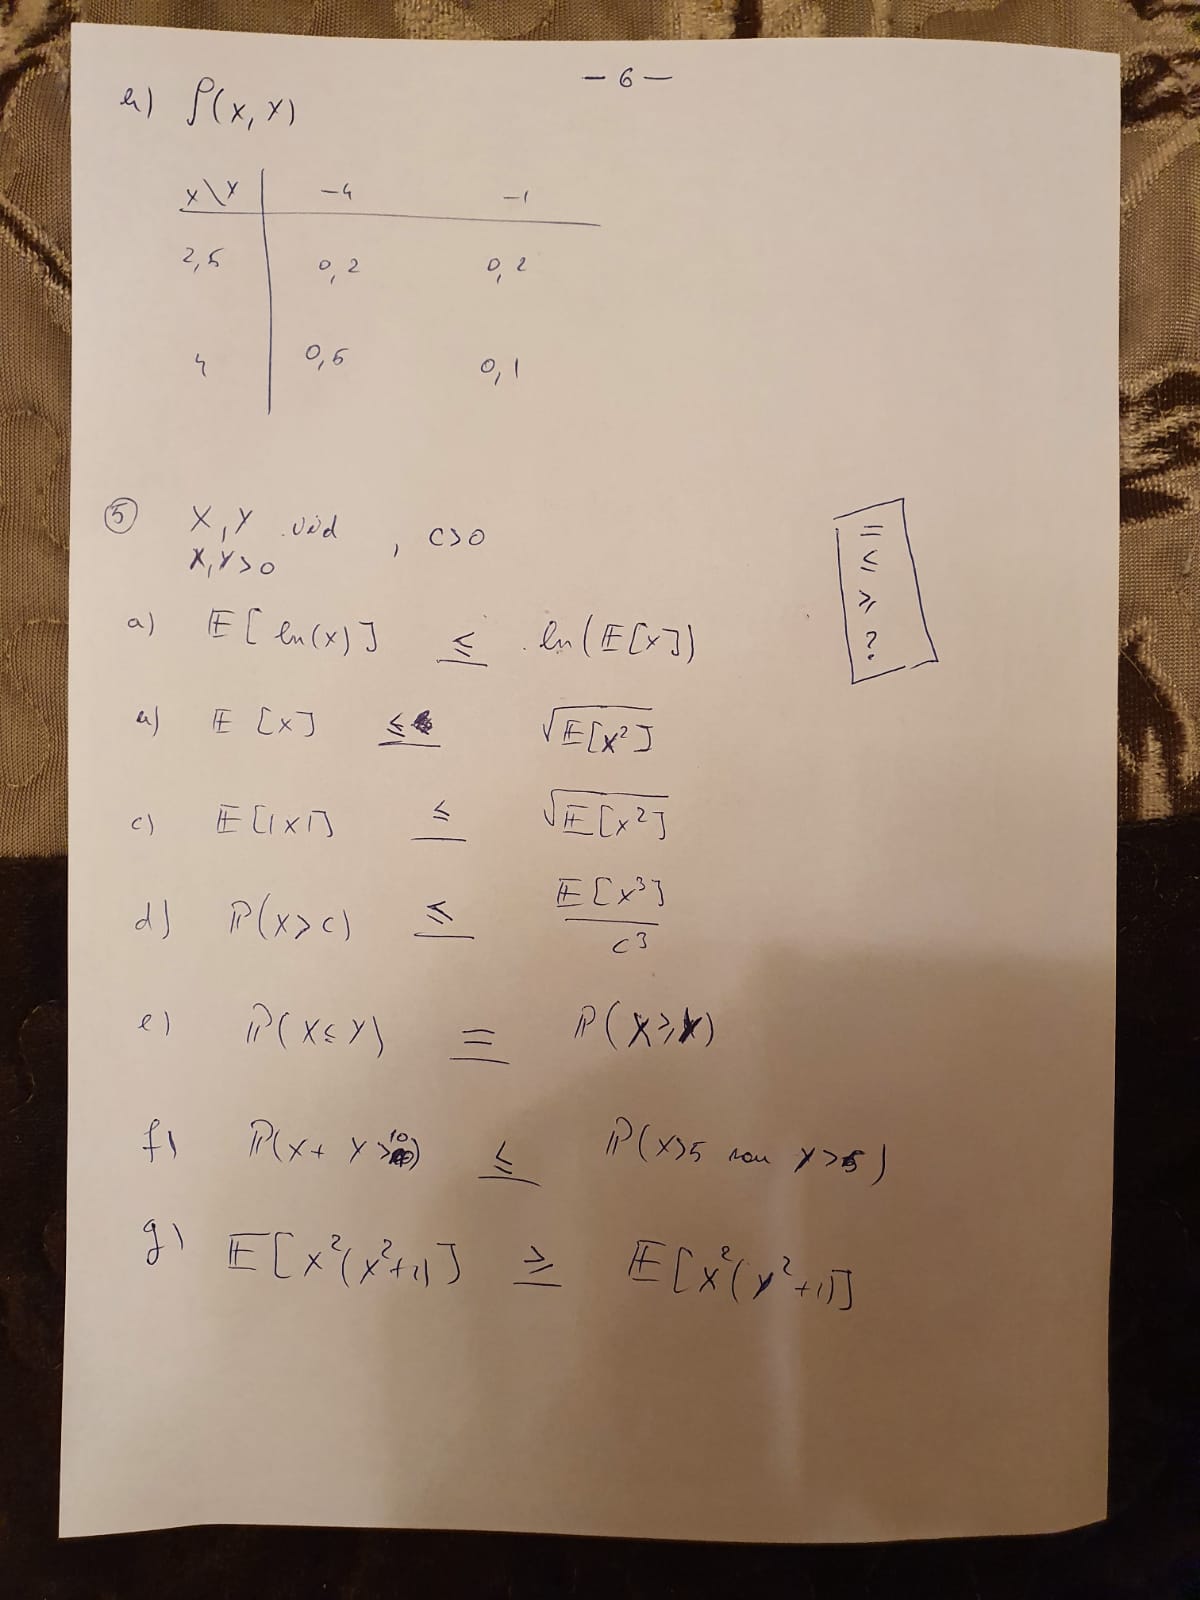 - 6 -
b) ρ(X, Y)
X\Y -4 -1
2,5 0,2 0,2
4 0,5 0,1
⑤ X, Y , c>0
X,Y>0
=
≤
≥
?
a) 𝔼[ln(X)] ≤ ln(𝔼[X])
b) 𝔼[X] ≤ √𝔼[X²]
c) 𝔼[|X|] ≤ √𝔼[X²]
d) ℙ(X>c) ≤ 𝔼[X³]/c³
e) ℙ(X≤Y) = ℙ(X≥Y)
f) ℙ(X+Y>10) ≤ ℙ(X>5 sau Y>5)
g) 𝔼[X²(X²+1)] ≥ 𝔼[X²(Y²+1)]